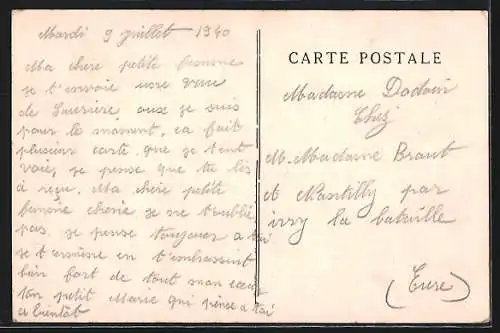 Mardi 9 juillet 1940
Ma chere petite femme
je t'envoie une vue
de Saurière aux je suis
pour le moment, ca fait
plusieur carte que je t'ent
vois, je pense que tu les
à reçu. Ma chère petite
femme cherie je ne t'oublie
pas je pense toujours a toi
je t'ennbrasse
bien fort de tout mon cœur
ton petit Marie qui pense a toi
a bientât
CARTE POSTALE
Madame Dodoin
Chez
M. Madame Braut
et Mantilly par
ivry la bataille
(Eure)